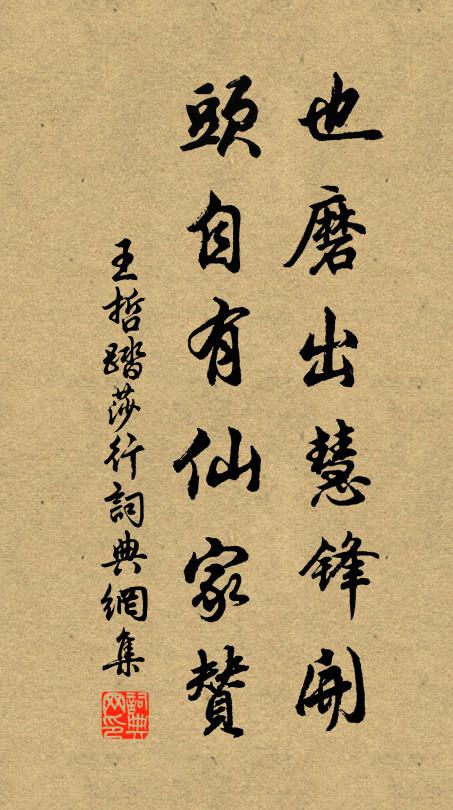 也磨出慧鋒開
頭自有仙家贊
王哲踏莎行詞典網集
詞典网印